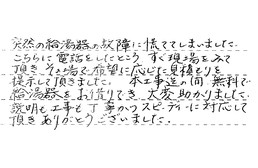 突然の給湯器の故障に慌ててしまいました。
こちらに電話をしたところ すぐ現場をみて
頂き、その場で希望に応じた見積もりを
提示して頂きました。 本工事迄の間、無料で
給湯器をお借りでき、大変助かりました。
説明も工事も丁寧かつスピーディーに対応して
頂きありがとうございました。